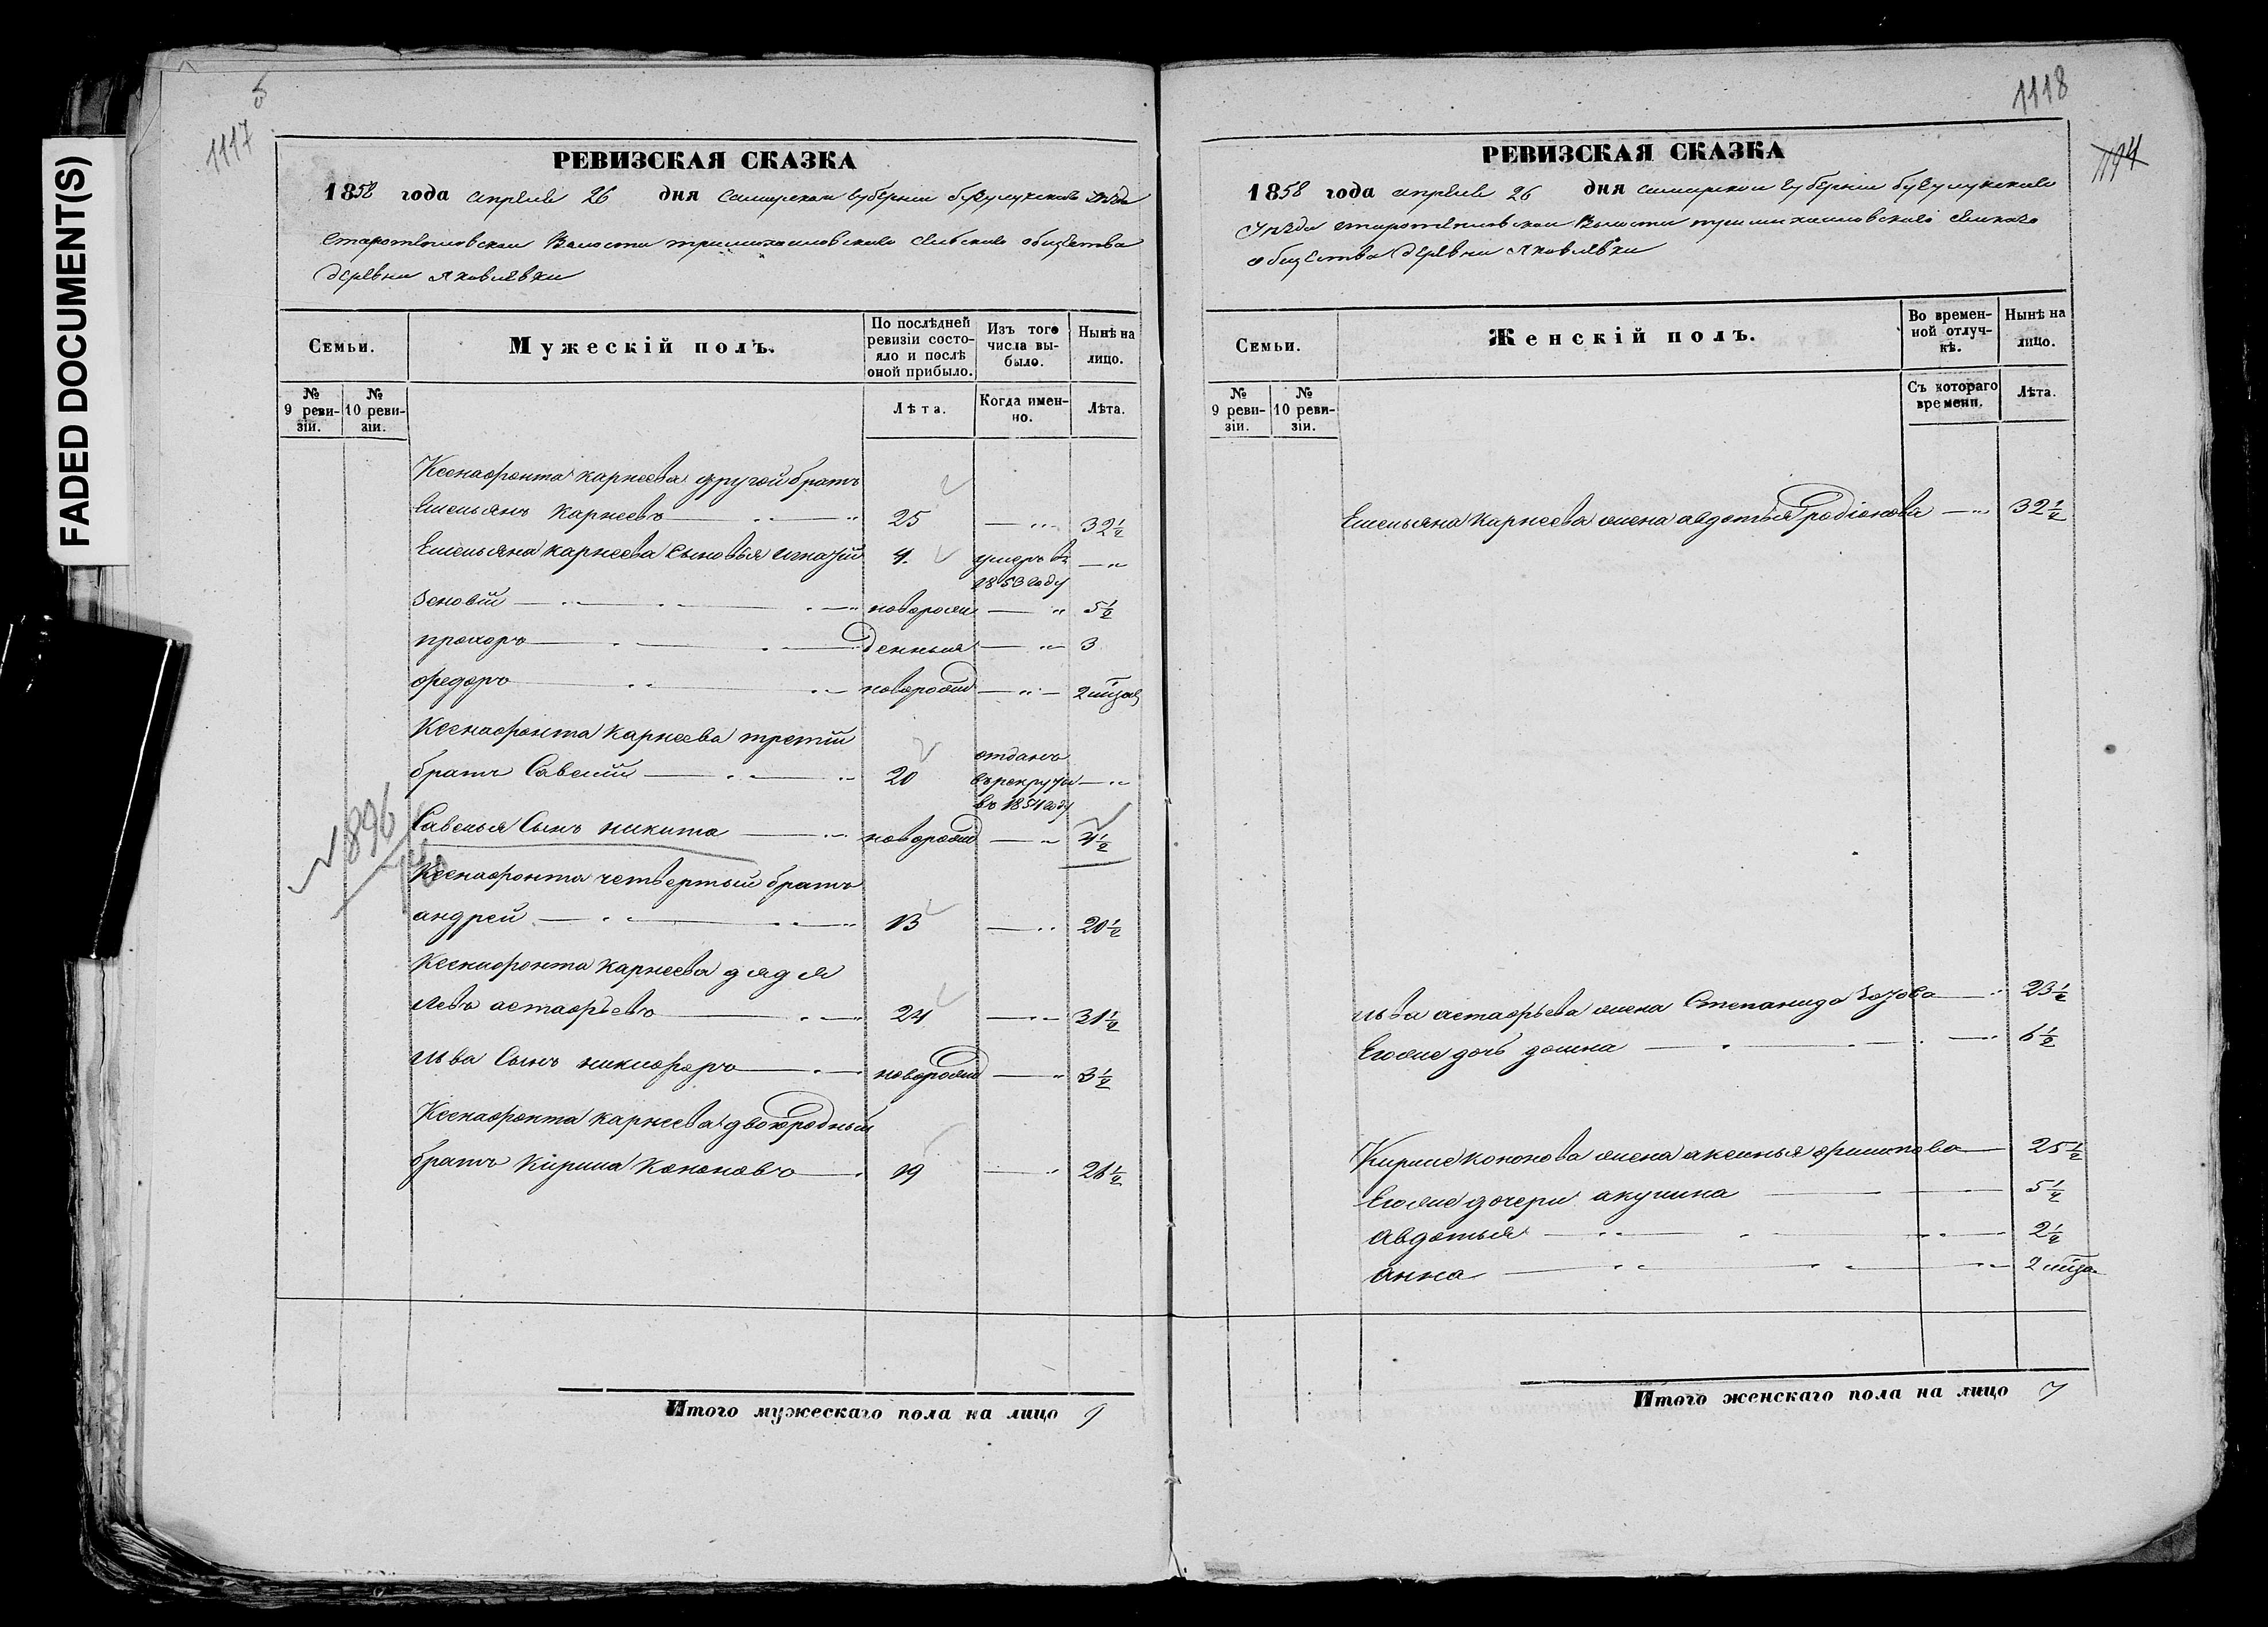 FADED DOCUMENT(S)
1117
РЕВИЗСКАЯ СКАЗКА
1858 года апреля 26 дня самарской губернии бузулукского уезда
Старотепловской Волости селского общества
деревни яковлевки
Семьи.
Мужескій полъ.
По послѣдней ревизіи состояло и послѣ оной прибыло.
Изъ того числа выбыло.
Нынѣ на лицо.
№ 9 ревизіи.
№ 10 ревизіи.
Лѣта.
Когда именно.
Лѣта.
Ксенафонта карнеева другой братъ
Емельянъ Карнеевъ 25 32½
Емельяна карнеева Сыновья игнатій 4. умеръ въ 1853 году
Зеновій новорож 5½
прохоръ денныя 3
федоръ новорожд 2 мца
Ксенафонта Карнеева третій
братъ Савелій 20 отданъ в рекруты в 1854 году
Савелья Сынъ никита новорожд 4½
№ 896
Ксенафонта четвертый братъ
андрей 13 20½
Ксенафонта Карнеева дядя
левъ астафьевъ 24 31½
льва Сынъ никифоръ новорожд 3½
Ксенафонта карнеева двоюродный
братъ Кирила Кононовъ 19 26½
Итого мужескаго пола на лицо 9
1118
1194
РЕВИЗСКАЯ СКАЗКА
1858 года апреля 26 дня самарской губерніи бузулукского
Уезда старотепловской Волости селского
общества деревни яковлевки
Семьи.
Женскій полъ.
Во временной отлучкѣ.
Нынѣ на лицо.
№ 9 ревизіи.
№ 10 ревизіи.
Съ котораго времени.
Лѣта.
Емельяна Карнеева жена авдотья родіонова 32½
льва астафьева жена Степанида 23½
Егоже дочь домна 6½
Кирилы кононова жена аксинья филипова 25½
Егоже дочери акулина 5½
авдотья 2½
анна 2 мца
Итого женскаго пола на лицо 7